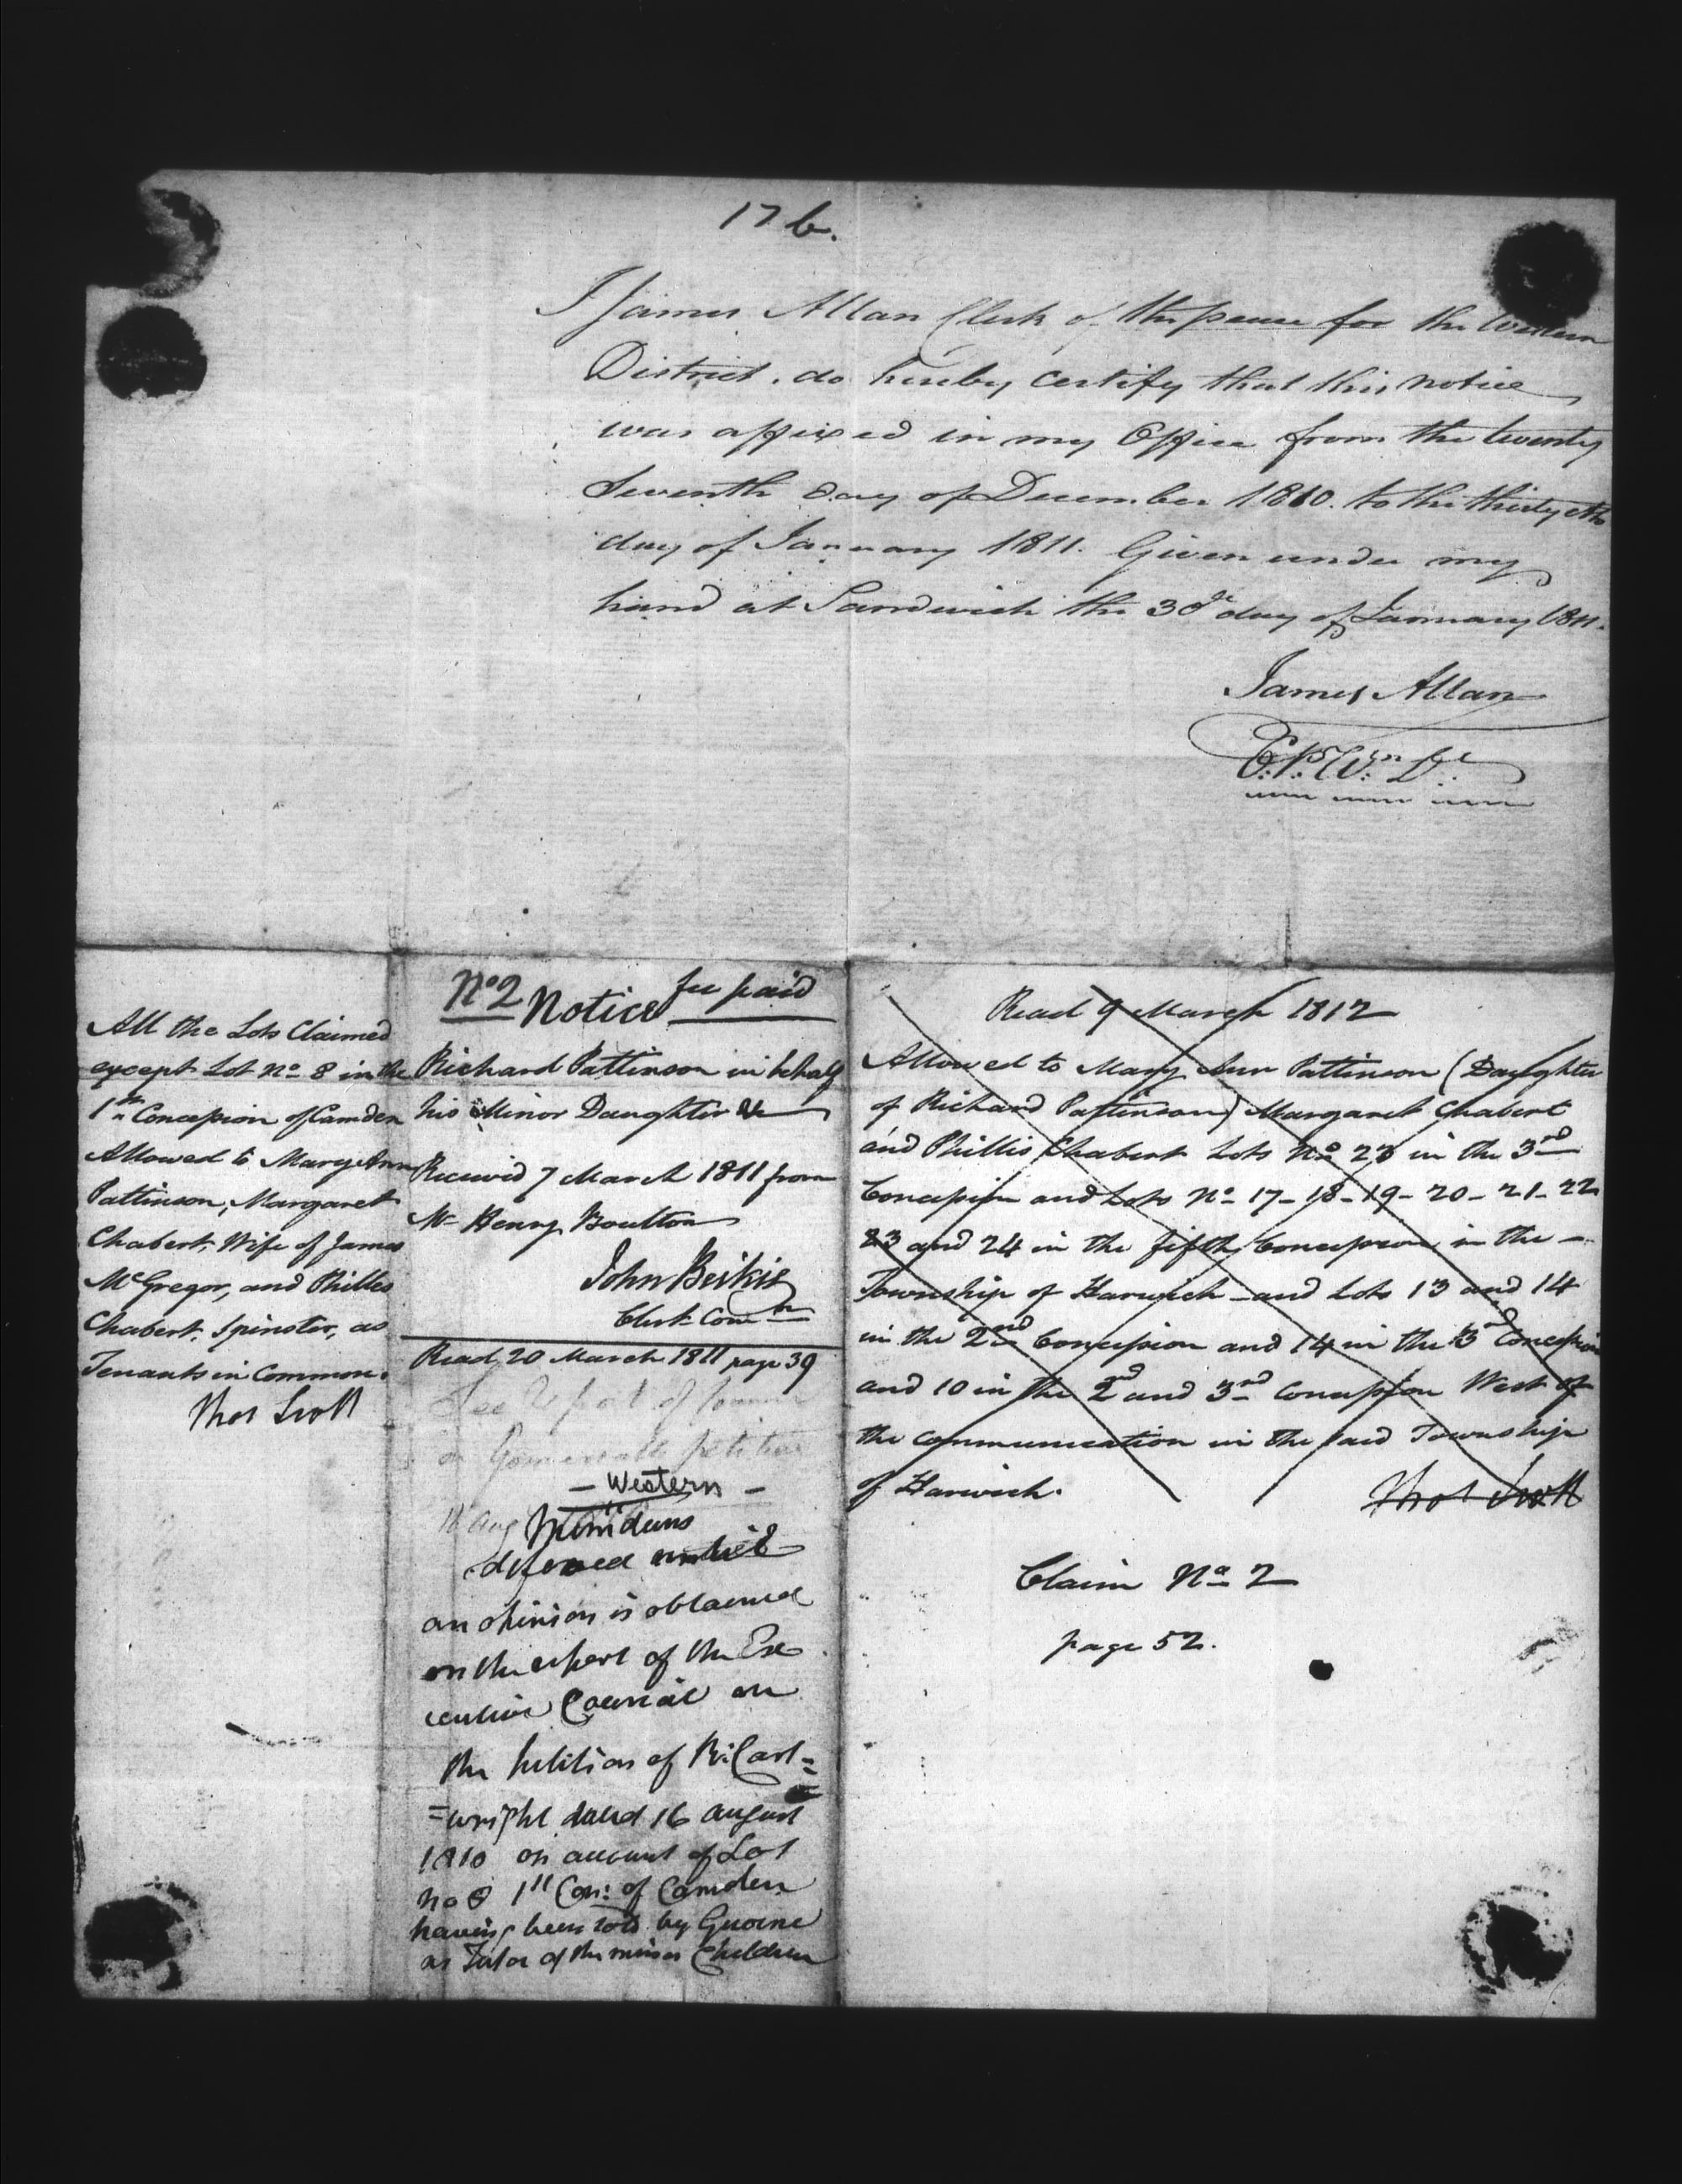 17 b.
I James Allan Clerk of the peace for the Western
District. do hereby certify that this notice
was affixed in my Office from the twenty
Seventh day of December 1810. to the thirtyeth
day of January 1811. Given under my
hand at Sandwich the 30th day of January 1811.
James Allan
C.P. Wn Dt.
All the Lots Claimed
except Lot No 8 in the
1st Concession of Camden
Allowed to Mary Ann
Pattinson, Margaret
Chabert, Wife of James
McGregor, and Phillis
Chabert, Spinster, as
Tenants in Common.
Thos Scott
No 2 Notice fee paid
Richard Pattinson in behalf
his Minor Daughter &c
Received 7 March 1811 from
Mr Henry Boulton
John Beikie
Clerk Comn
Read 20 March 1811 page 39
See Report of
on petition
- Western -
16 Aug
deferred until
an opinion is obtained
on the report of the Exe
cutive Council on
the petition of R: Cart=
=wright dated 16 august
1810 on account of Lot
no 8 1st Con: of Camden
having been sold by Guoine
as Tutor of the minor Children
Read 9 March 1812
Allowed to Mary Ann Pattinson (Daughter
of Richard Pattinson) Margaret Chabert
and Phillis Chabert Lots No 23 in the 3nd
Concession and Lots No 17-18-19-20-21-22
23 and 24 in the fifth Concession in the -
Township of Harwich - and Lots 13 and 14
in the 2nd Concession and 14 in the 3nd Concession
and 10 in the 2nd and 3nd Concession West of
the communication in the said Township
of Harwich.
Thos Scott
Claim No 2
page 52.